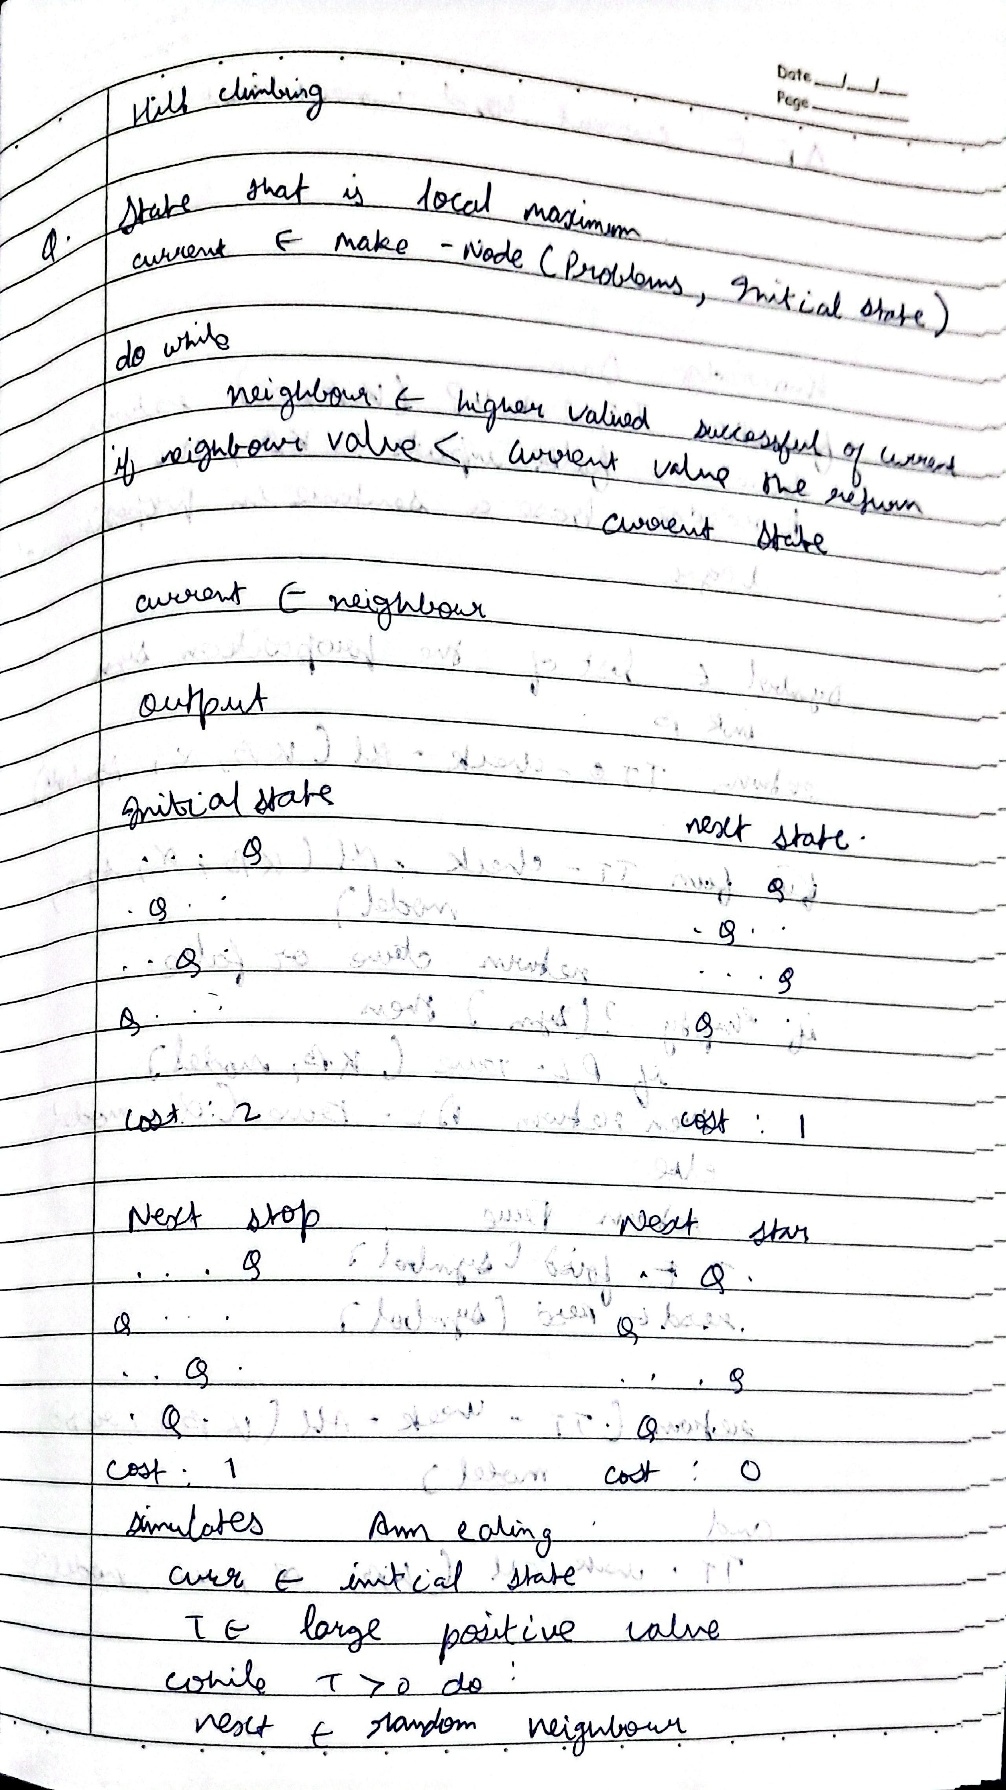 Date __/__/__
Page
Hill climbing
Q. State that is local maximum
current ∈ make - Node (Problems, Initial state)
do while
neighbour ∈ higher valued successful of current
if neighbour value < current value the return
current state
current ∈ neighbour
output
Initial state next state.
. . . Q Q
. Q . . . Q . .
. . Q . . . Q
Q . . . Q
cost : 2 cost : 1
Next stop Next star
. . . Q . . Q .
Q . . . Q . . .
. . Q . . . . Q
. Q . . . Q
cost : 1 cost : 0
simulates Ann ealing
curr ∈ initial state
T ∈ large positive value
while T > 0 do :
next ∈ random neighbour